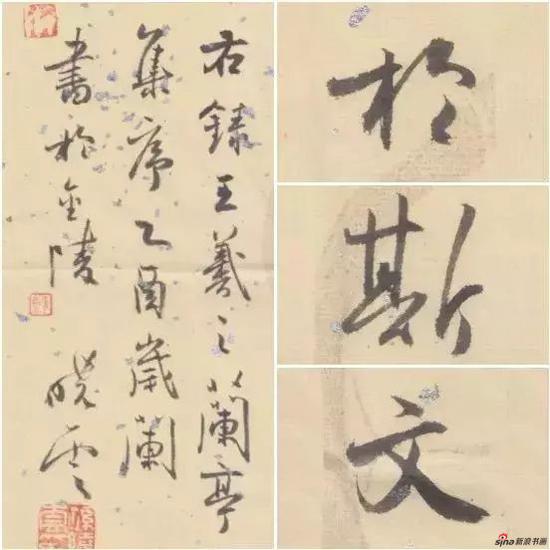 右錄王羲之蘭亭
集序乙酉歲闌
書於金陵 曉雲
於
斯
文
sina新浪书画